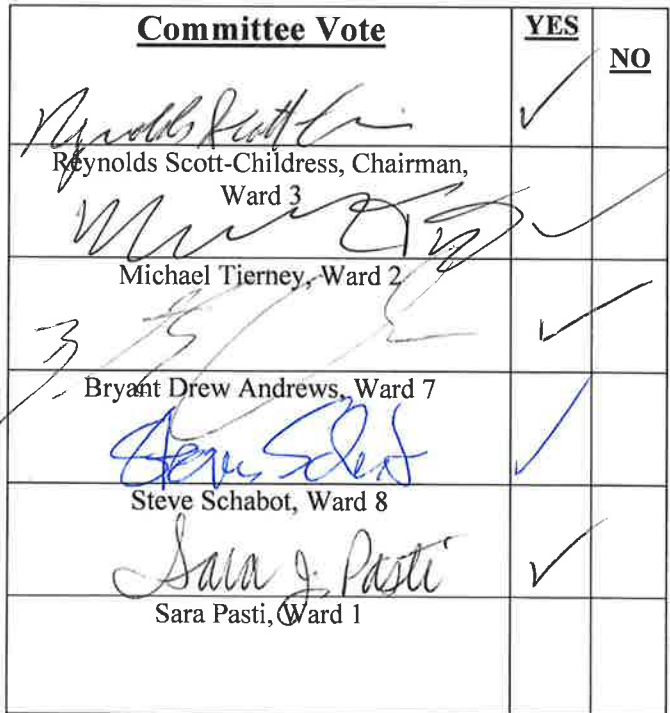 Committee Vote YES NO
Reynolds Scott ✓
Reynolds Scott-Childress, Chairman,
Ward 3
✓
Michael Tierney, Ward 2
✓
Bryant Drew Andrews, Ward 7
✓
Steve Schabot, Ward 8
Sara J. Pasti ✓
Sara Pasti, Ward 1